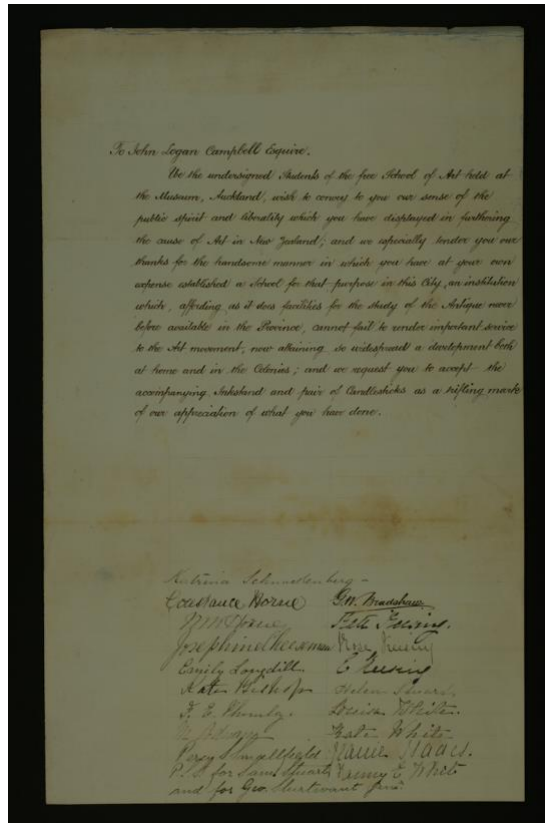 To John Logan Campbell Esquire.
We the undersigned Students of the free School of Art held at
the Museum, Auckland, wish to convey to you our sense of the
public spirit and liberality which you have displayed in furthering
the cause of Art in New Zealand; and we especially tender you our
thanks for the handsome manner in which you have at your own
expense established a School for that purpose in this City, an institution
which, affording as it does facilities for the study of the Antique never
before available in the Province, cannot fail to render important service
to the Art movement, now attaining so widespread a development both
at home and in the Colonies; and we request you to accept the
accompanying Inkstand and pair of Candlesticks as a trifling mark
of our appreciation of what you have done.
Katrina
Constance Horne G.W. Bradshaw.

Josephine Cheeseman Rose
Emily Longdill C
Kate Bishop Helen Stuart.
F. E. Louisa White.
Kate White
Percy Smallfield Isaacs.
for Sam Stuart Fanny E White
and for Geo. Sturtevant